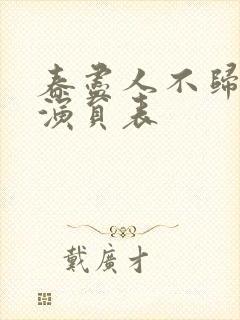 春盡人不歸
演員表
戴廣才